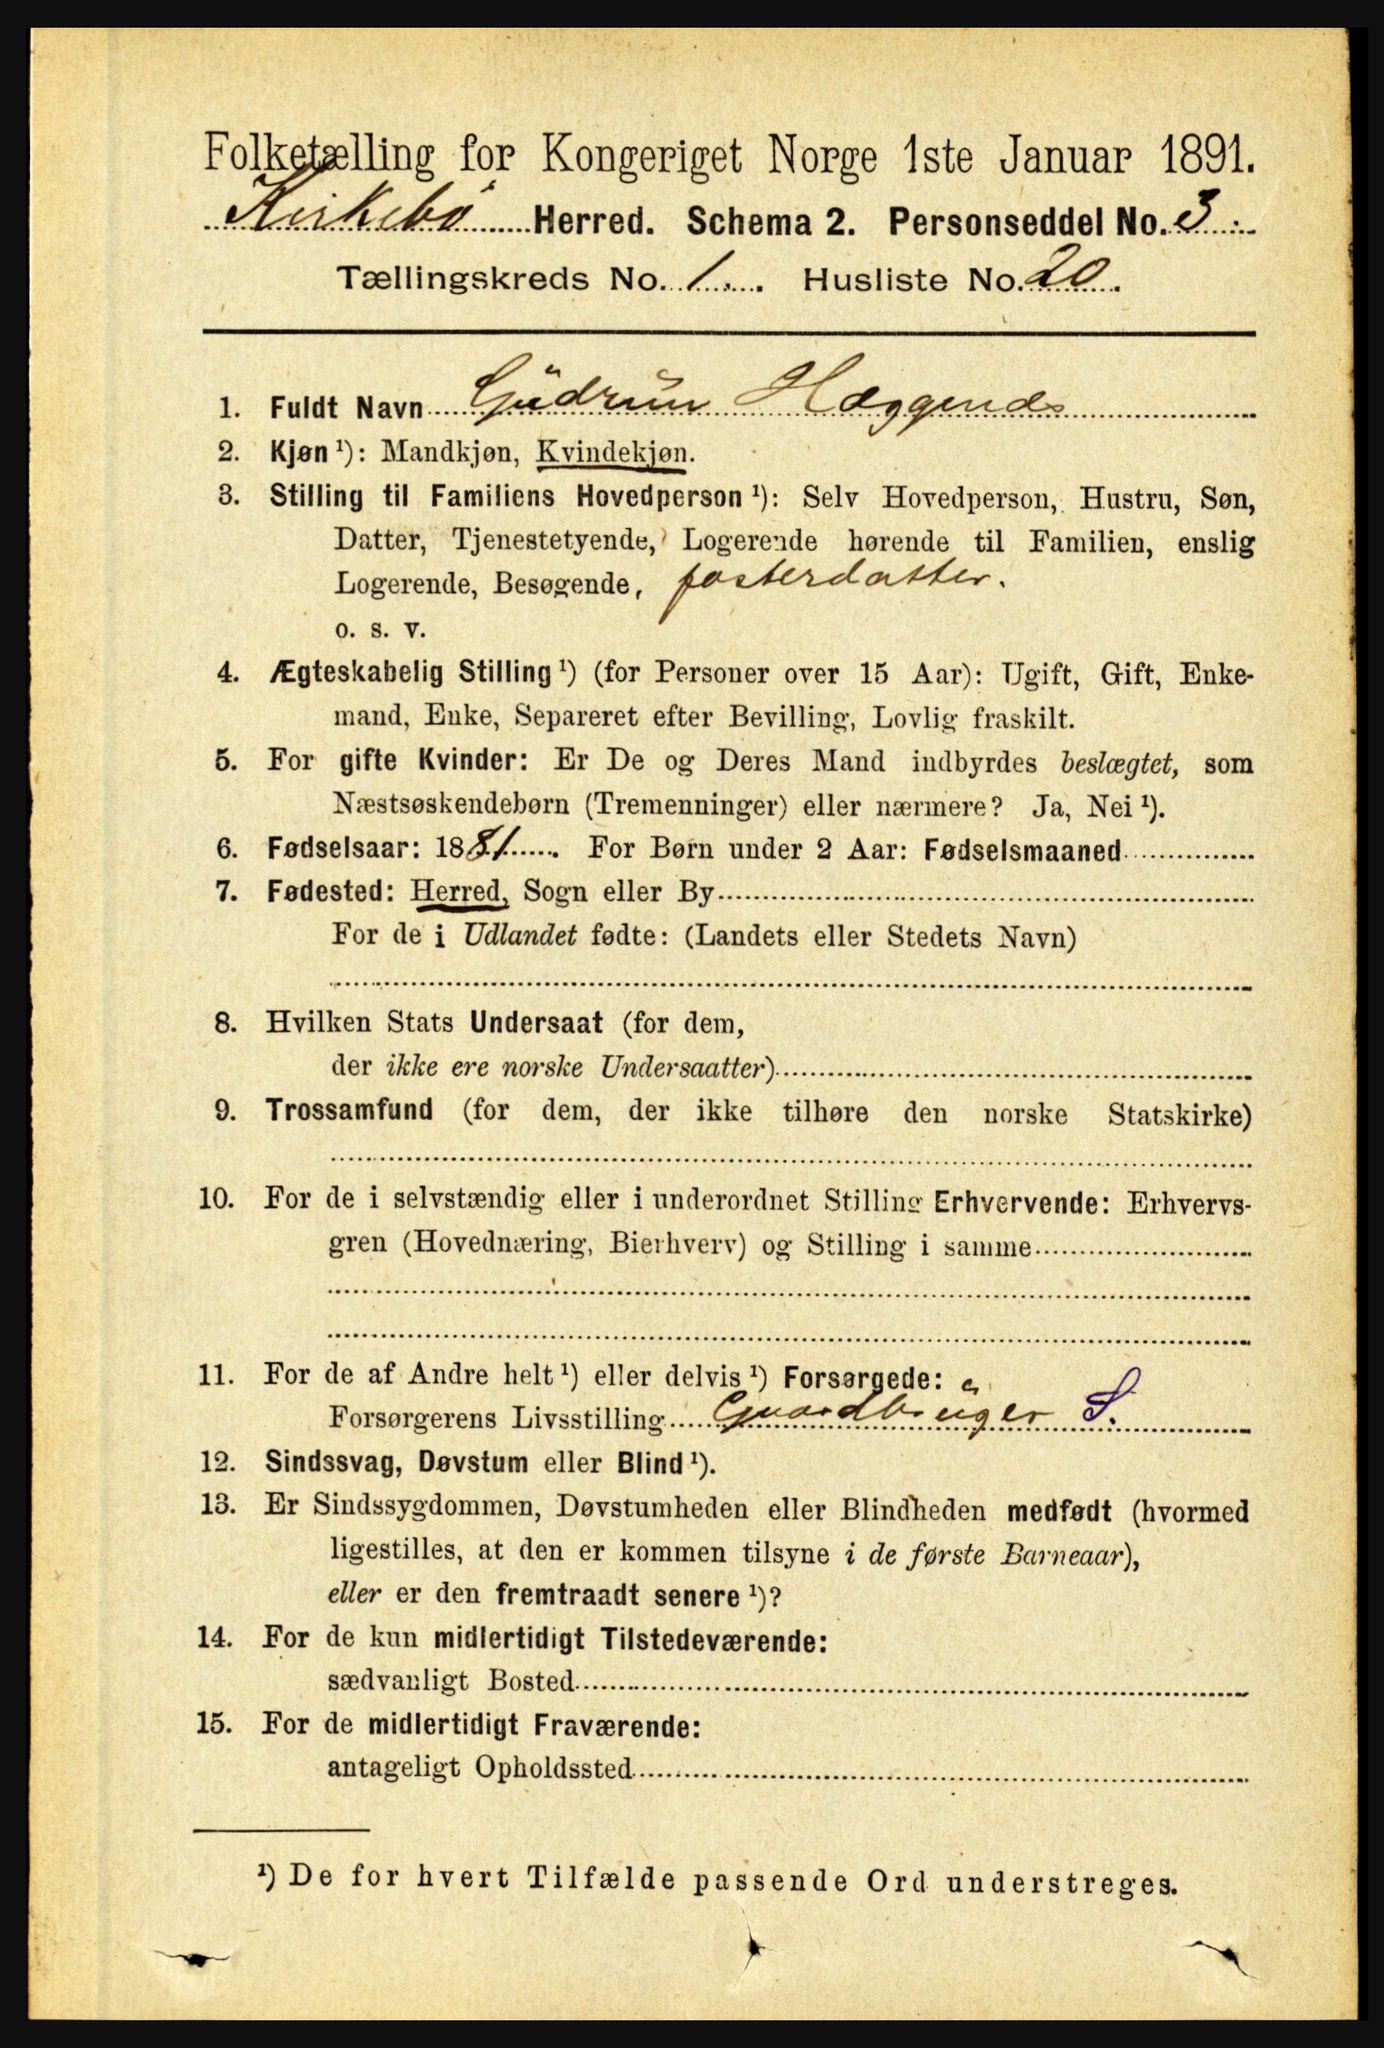 Folketælling for Kongeriget Norge 1ste Januar 1891.
Kirkebø Herred. Schema 2. Personseddel No. 3
Tællingskreds No. 1. Husliste No. 20.
1. Fuldt Navn Gudrun Hæggenes
2. Kjøn ¹): Mandkjøn, Kvindekjøn.
3. Stilling til Familiens Hovedperson ¹): Selv Hovedperson, Hustru, Søn,
Datter, Tjenestetyende, Logerende hørende til Familien, enslig
Logerende, Besøgende, fosterdatter.
o. s. v.
4. Ægteskabelig Stilling ¹) (for Personer over 15 Aar): Ugift, Gift, Enke-
mand, Enke, Separeret efter Bevilling, Lovlig fraskilt.
5. For gifte Kvinder: Er De og Deres Mand indbyrdes beslægtet, som
Næstsøskendebørn (Tremenninger) eller nærmere? Ja, Nei ¹).
6. Fødselsaar: 1881. For Børn under 2 Aar: Fødselsmaaned
7. Fødested: Herred, Sogn eller By
For de i Udlandet fødte: (Landets eller Stedets Navn)
8. Hvilken Stats Undersaat (for dem,
der ikke ere norske Undersaatter)
9. Trossamfund (for dem, der ikke tilhøre den norske Statskirke)
10. For de i selvstændig eller i underordnet Stilling Erhvervende: Erhvervs-
gren (Hovednæring, Bierhverv) og Stilling i samme
11. For de af Andre helt ¹) eller delvis ¹) Forsørgede:
Forsørgerens Livsstilling Gaardbruger S.
12. Sindssvag, Døvstum eller Blind ¹).
13. Er Sindssygdommen, Døvstumheden eller Blindheden medfødt (hvormed
ligestilles, at den er kommen tilsyne i de første Barneaar),
eller er den fremtraadt senere ¹)?
14. For de kun midlertidigt Tilstedeværende:
sædvanligt Bosted
15. For de midlertidigt Fraværende:
antageligt Opholdssted
¹) De for hvert Tilfælde passende Ord understreges.